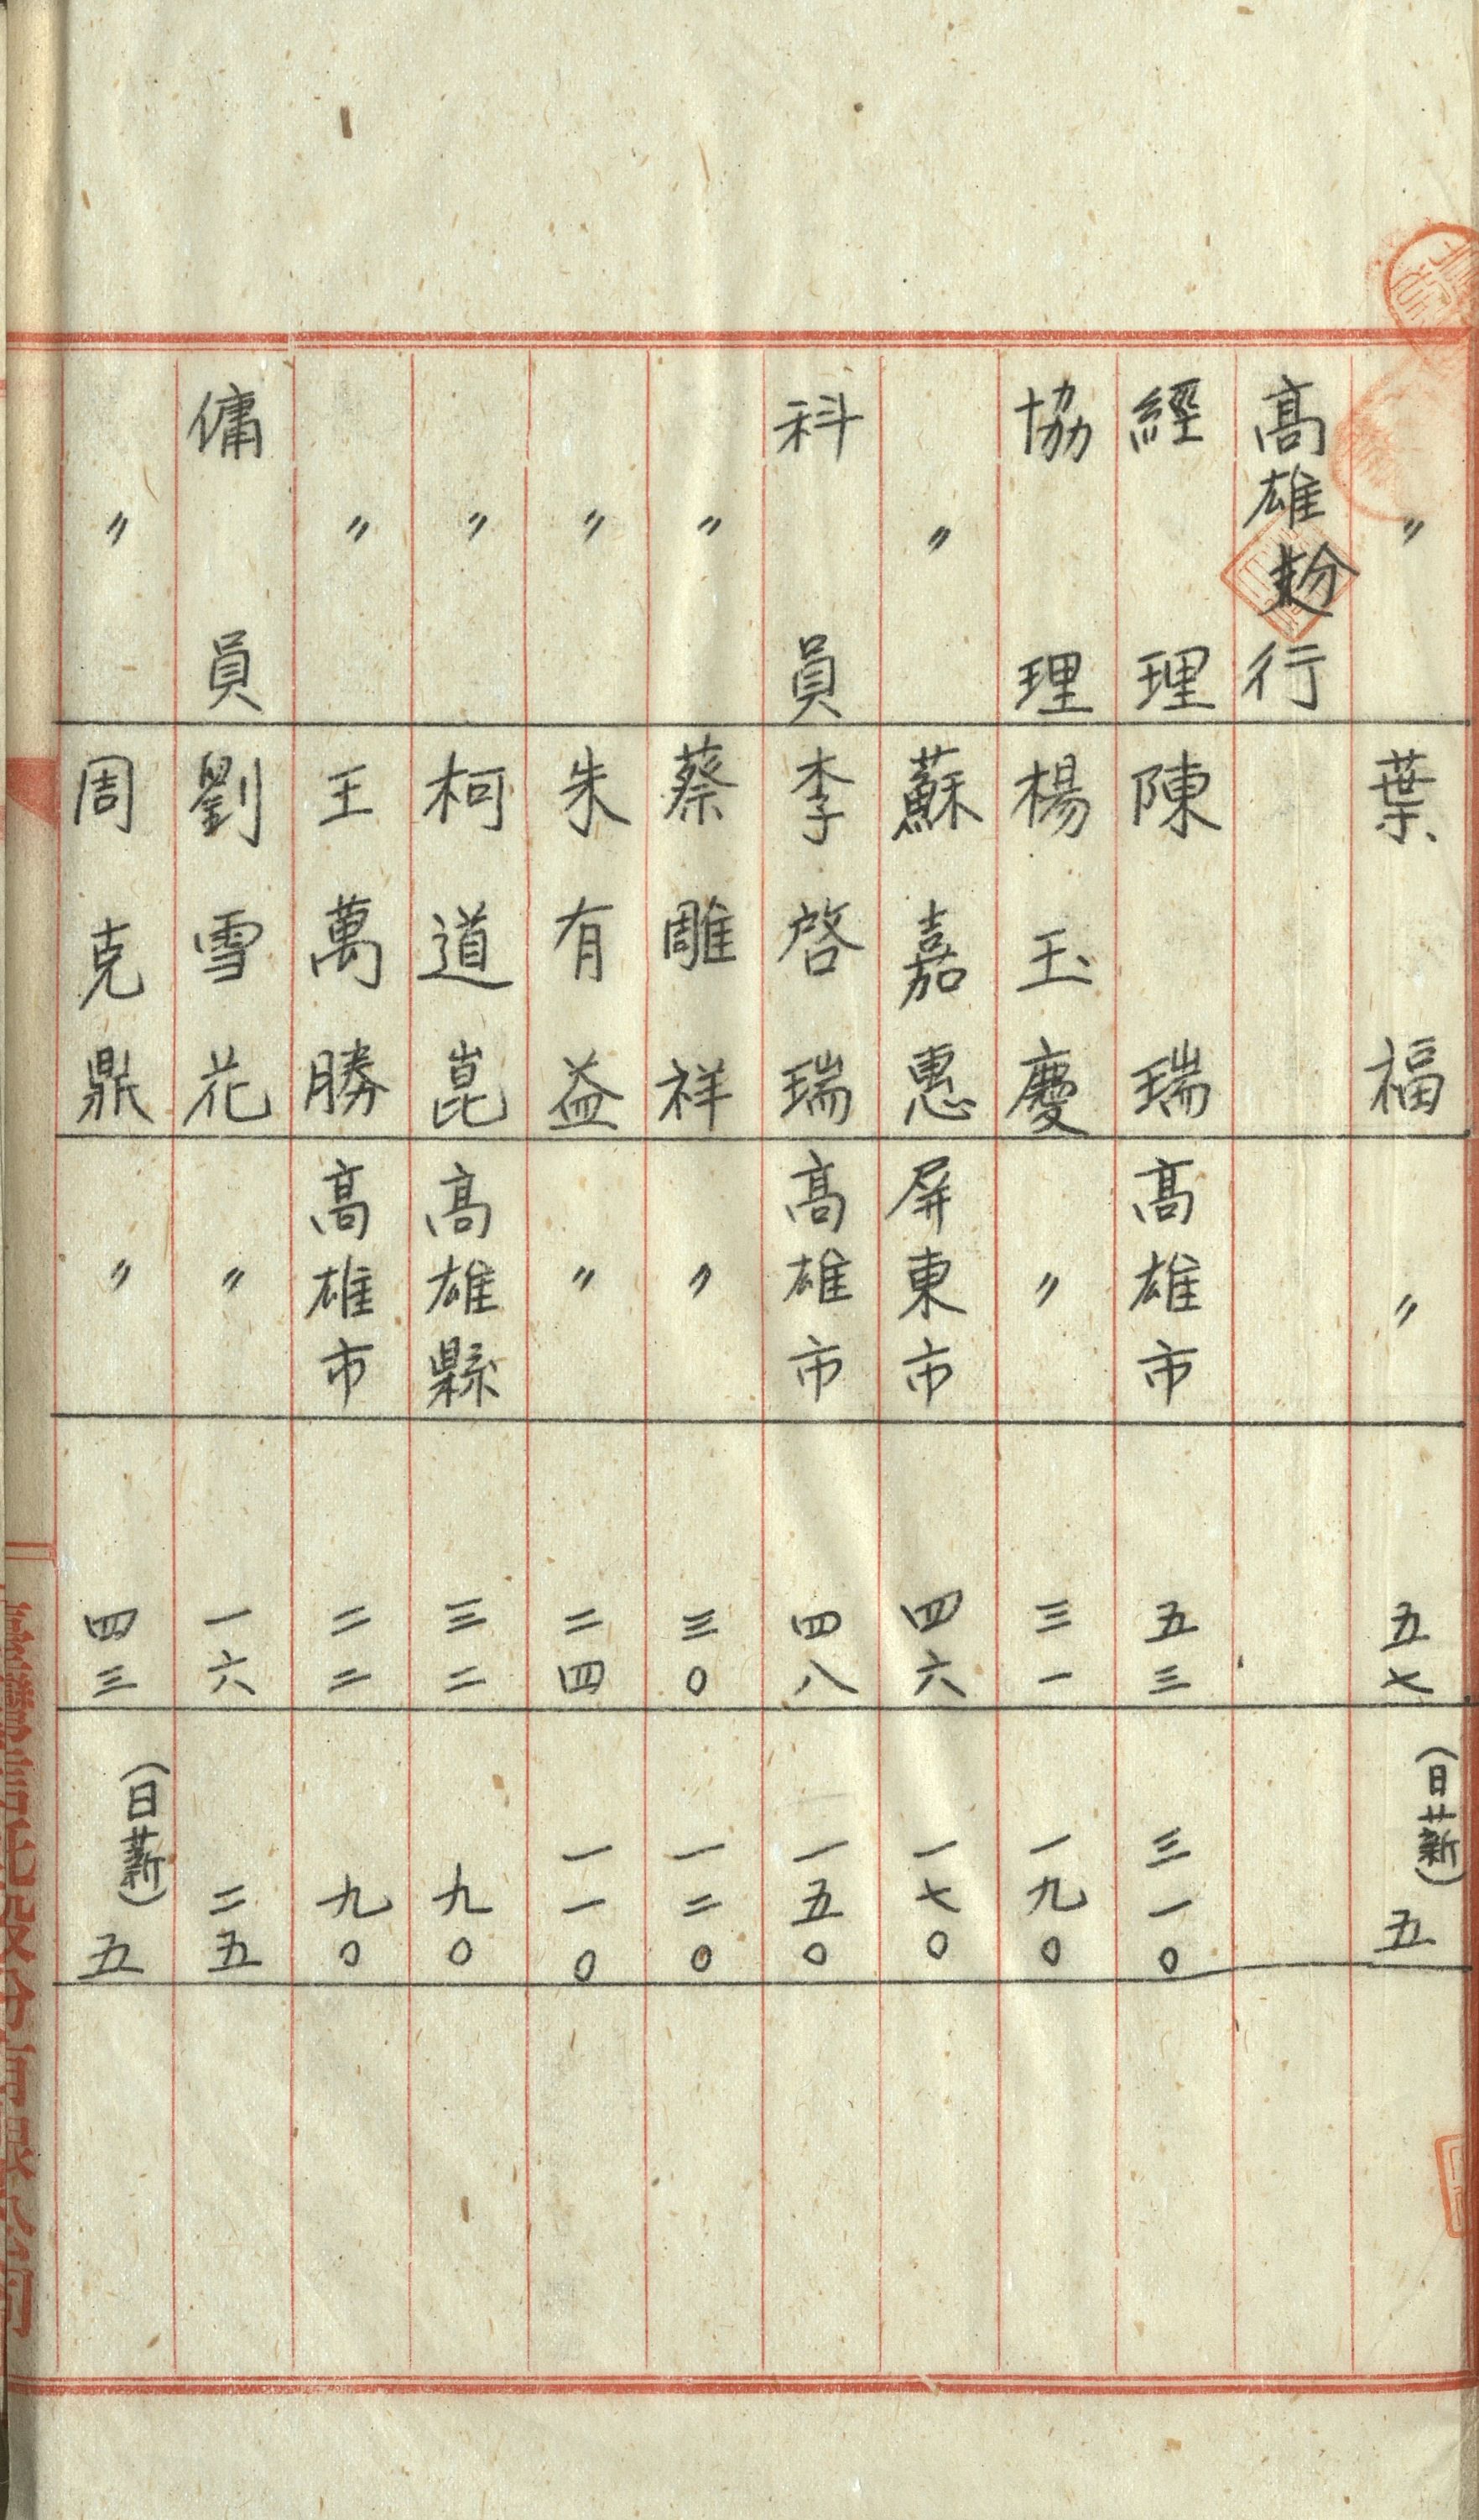 〃 葉福 〃 五七 (日薪)五
高雄分行
經理 陳瑞 高雄市 五三 三一〇
協理 楊玉慶 〃 三一 一九〇
〃 蘇嘉惠 屏東市 四六 一七〇
科員 李啓瑞 高雄市 四八 一五〇
〃 蔡雕祥 〃 三〇 一二〇
〃 朱有益 〃 二四 一一〇
〃 柯道崑 高雄縣 三二 九〇
〃 王萬勝 高雄市 二二 九〇
傭員 劉雪花 〃 一六 二五
〃 周克鼎 〃 四三 (日薪)五